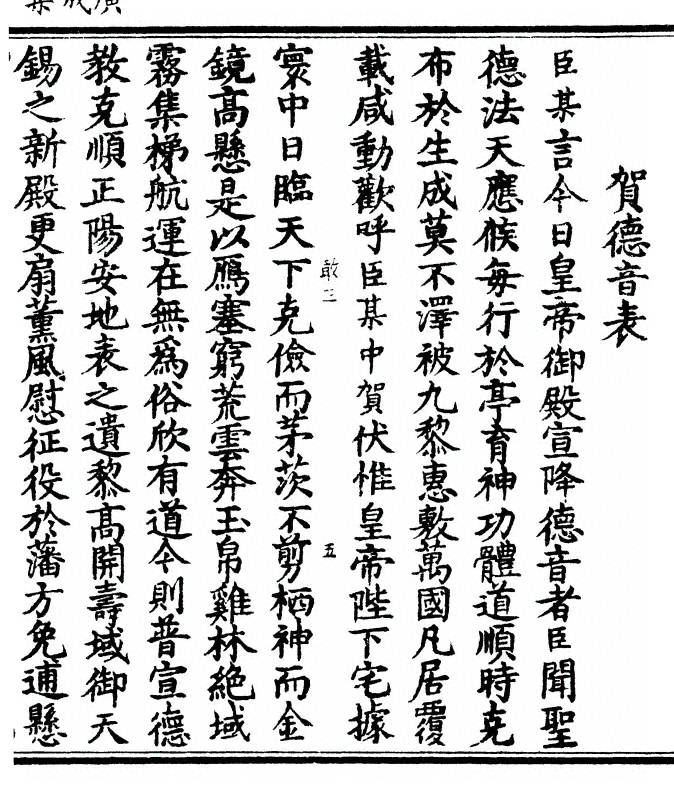 賀德音表
臣某言今日皇帝御殿宣降德音者臣聞聖
德法天應候每行於亭育神功體道順時克
布於生成莫不澤被九黎惠敷萬國凡居覆
載咸動歡呼臣某中賀伏惟皇帝陛下宅據
敢三
五
寰中日臨天下克儉而茅茨不剪栖神而金
鏡高懸是以鴈塞窮荒雲奔玉帛雞林絶域
霧集梯航運在無為俗欣有道今則普宣德
教克順正陽安地表之遺黎高開壽域御天
錫之新殿更扇薰風慰征役於藩方免逋懸